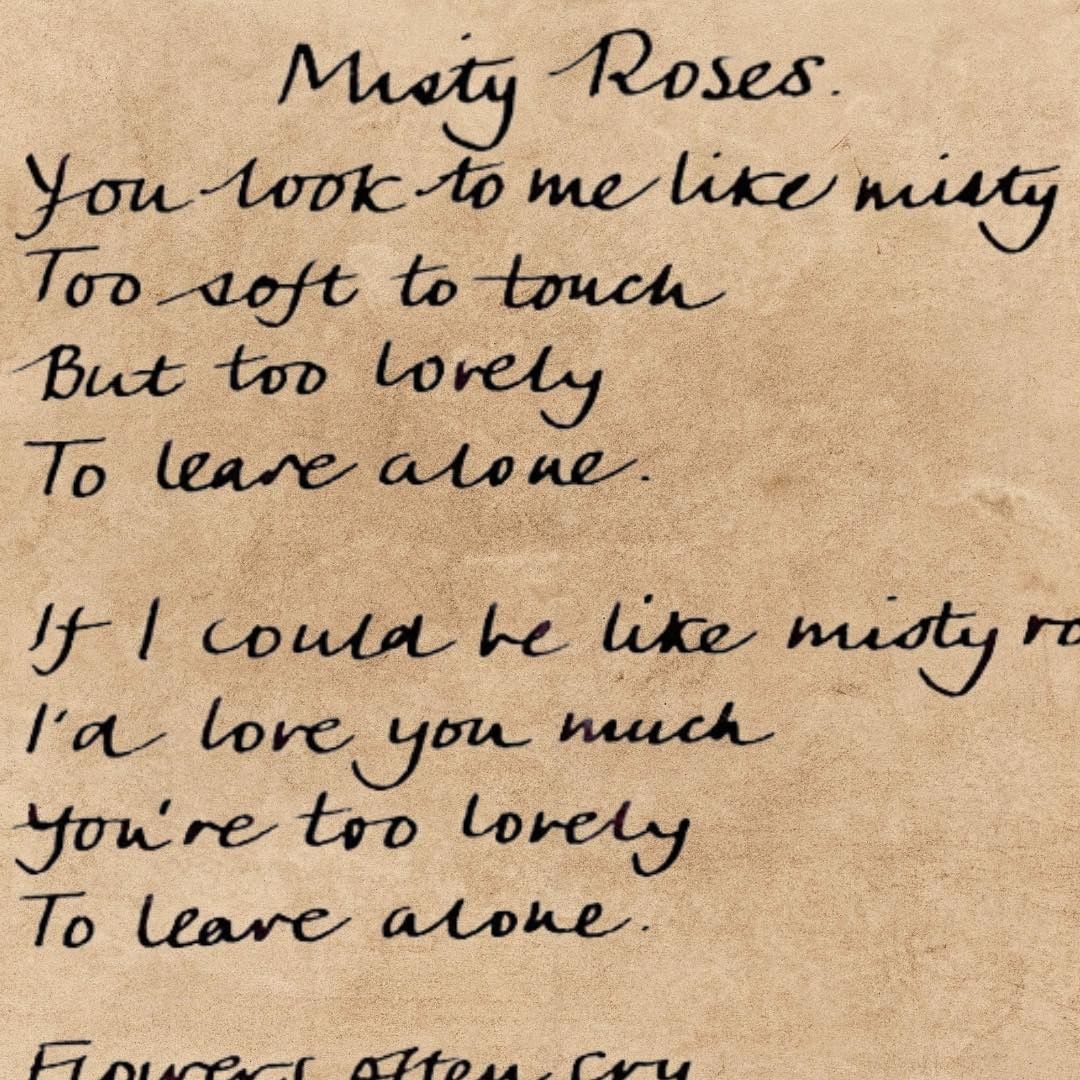 Misty Roses.
You look to me like misty
Too soft to touch
But too lovely
To leave alone.
If I could be like misty ro
I'd love you much
You're too lovely
To leave alone.
Flowers often cry